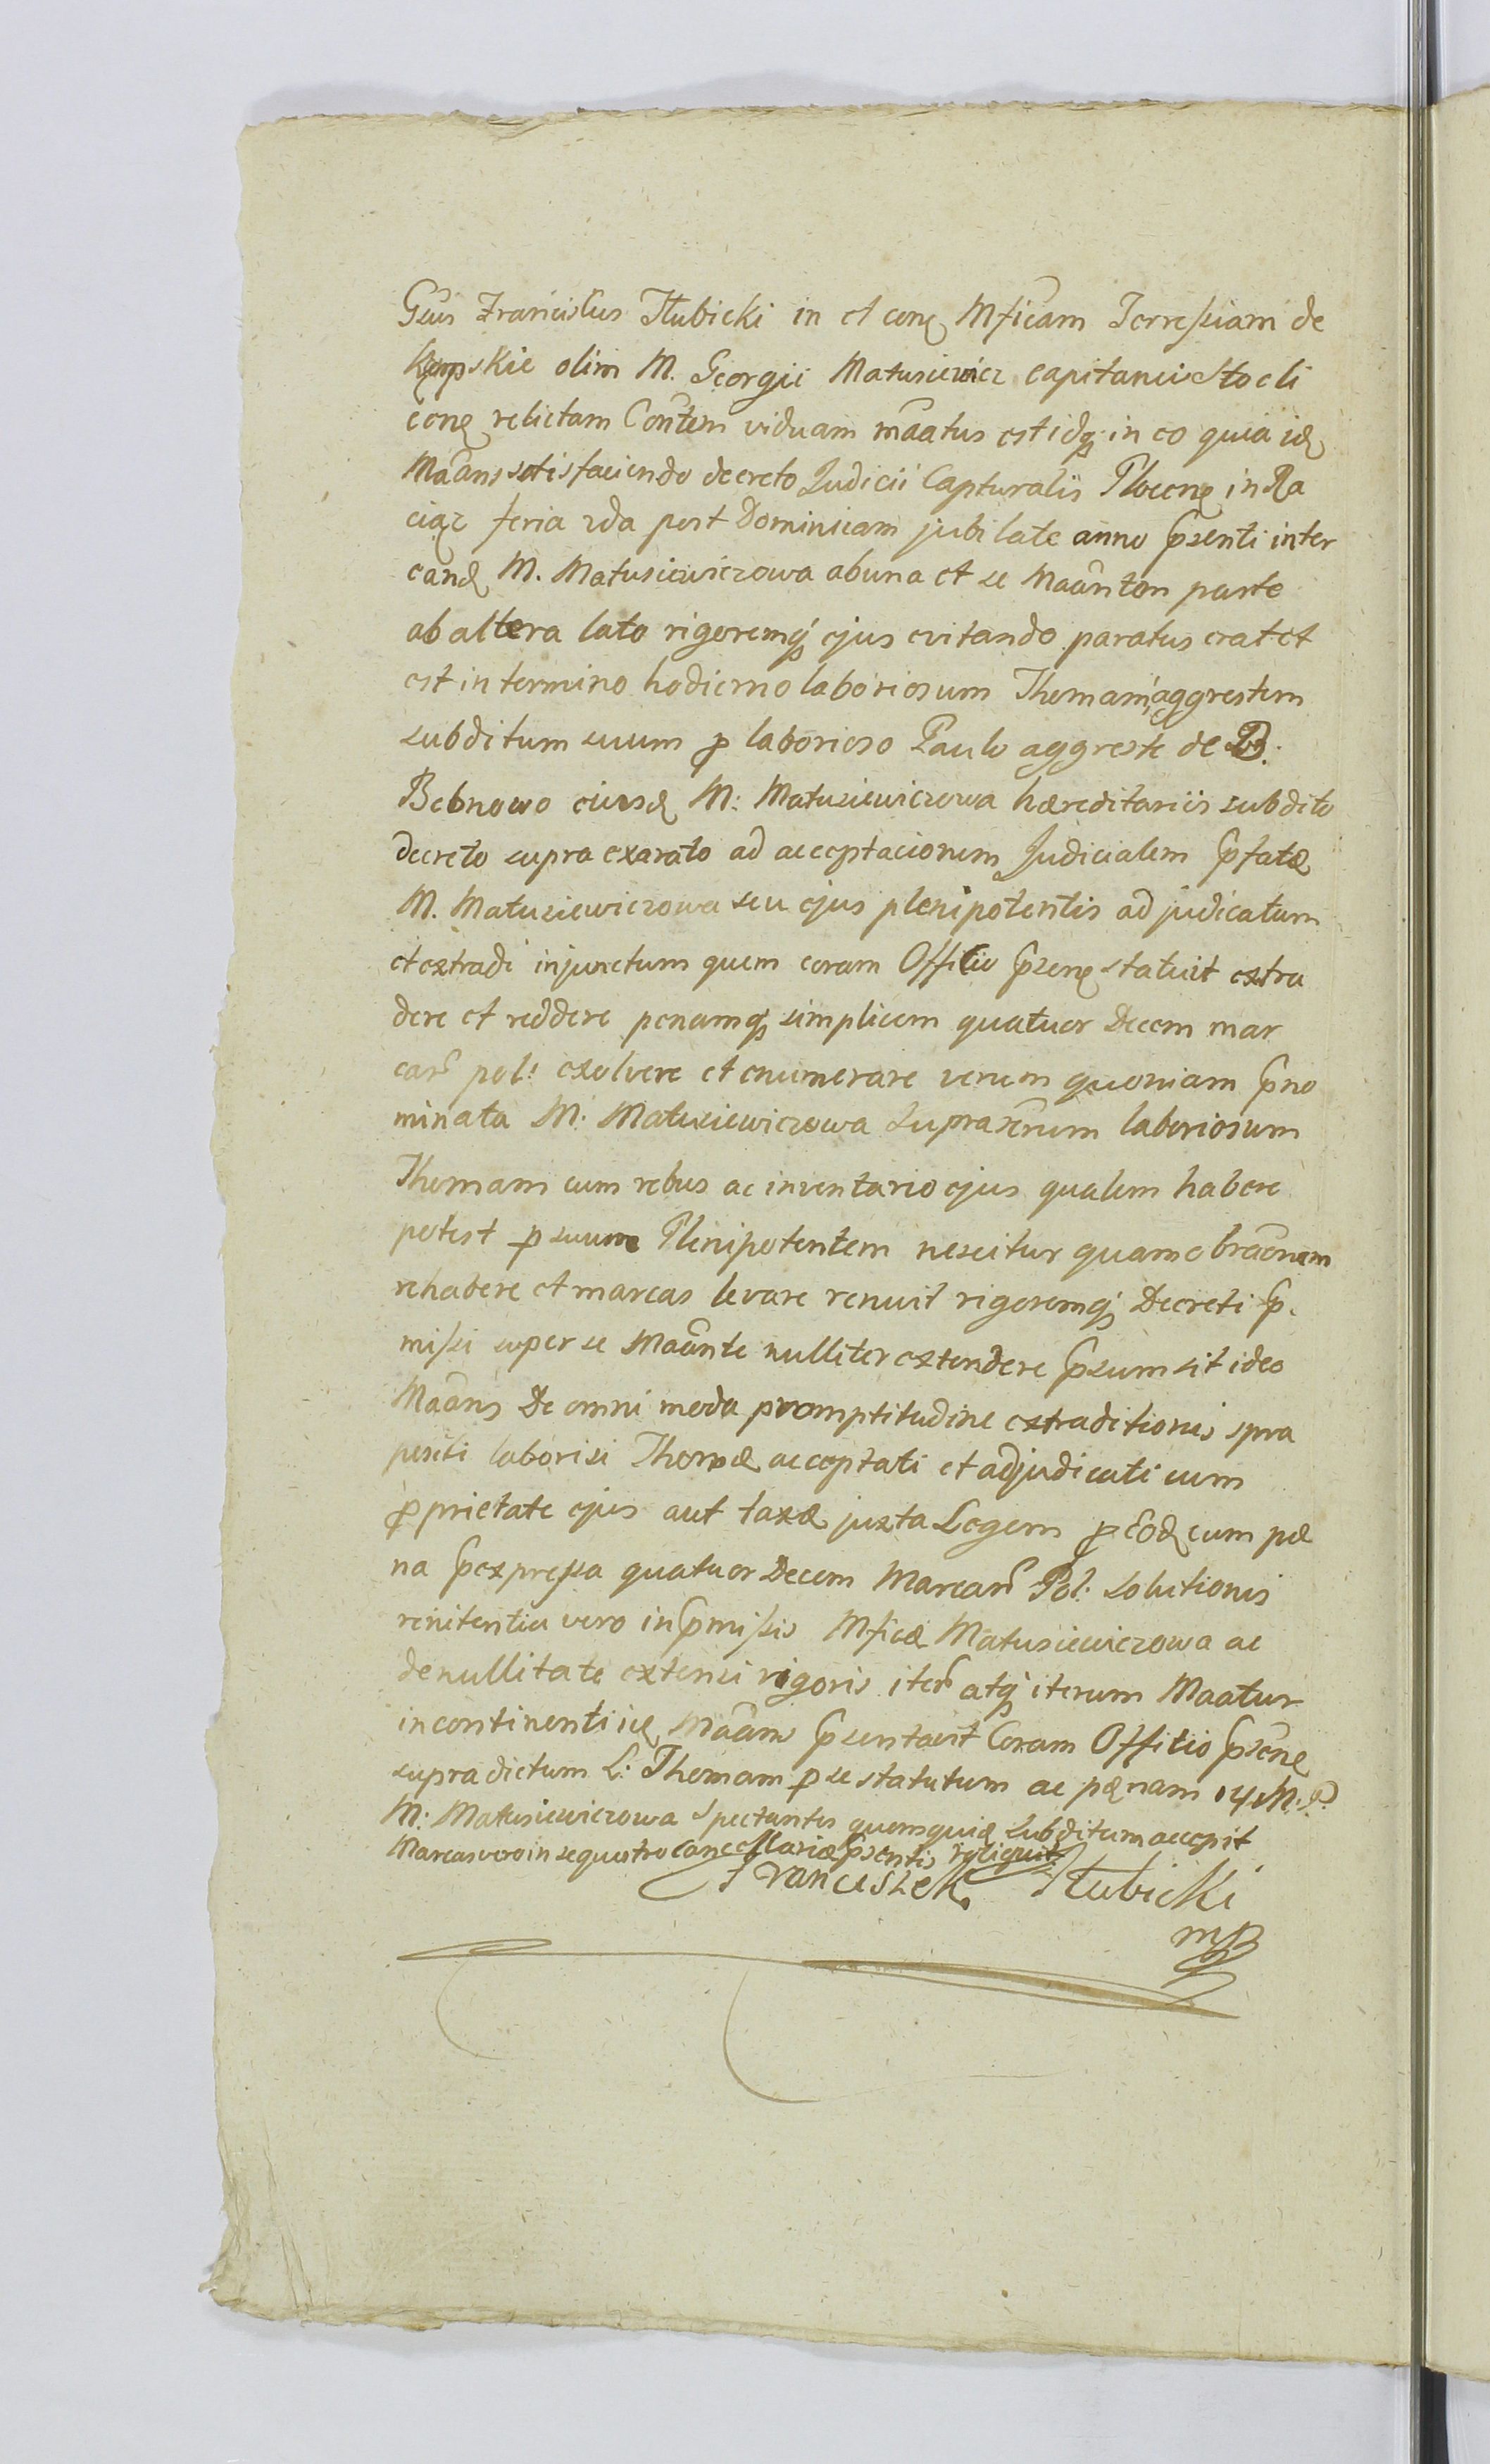 Gsus Franciscus Tłubicki in et conq Mficam Terressiam de
Kempskie olim M. Georgii Matusiewicz capitanei Stocli
conq relictam Contem viduam maatus est idq; in eo quia idq
Maans satisfaciendo decreto Judicii Capturalis Plocenq in Ra
ciąz feria 2da post Dominicam jubilate anno psenti inter
eandq M. Matusiewiczowa ab una et se Maantem parte
ab altera lato rigoremq; ejus evitando paratus erat et
est in termino hodierno laboriosum Thomam aggrestem
subditum suum p laborioso Paulo aggreste de B.
Bebnowo eiusdq M: Matusiewiczowa hæreditariis subdito
decreto supra exarato ad acceptacionem Judicialem pfatæ
M. Matusiewiczowa seu ejus plenipotentis adjudicatum
et extradi injunctum quem coram Officio psenq statuit extra
dere et reddere penamq; simplicem quatuor Decem mar
car pol: exolvere et enumerare verum quoniam pno
minata M: Matusiewiczowa Supraxrum laboriosum
Thomam cum rebus ac inventario ejus qualem habere
potest p suum Plenipotentem nescitur quam ob raonem
rehabere et marcas levare renuit rigoremq; Decreti p.
missi super se Maante nulliter extendere psumsit ideo
Maans De omni moda promptitudine extraditionis spra
positi laborisi Thomæ acceptati et adjudicati cum
pprietate ejus aut taxæ juxta Legem p Eodq cum pæ
na pexpressa quatuor Decem Marcar Pol: solutionis
renitentia vero in pmissis Mficæ Matusiewiczowa ac
de nullitate extensi rigoris iter atq; iterum Maatur
in continenti idq Maans psentavit Coram Officio psenq
supradictum L: Thomam p se statutum ac pænam 14 M. P.
M: Matusiewiczowa Spectantes quemquidq subditum accepit
Marcas vero in sequestro cancellariæ psentis reliquit
Franciszek Tłubicki
mp